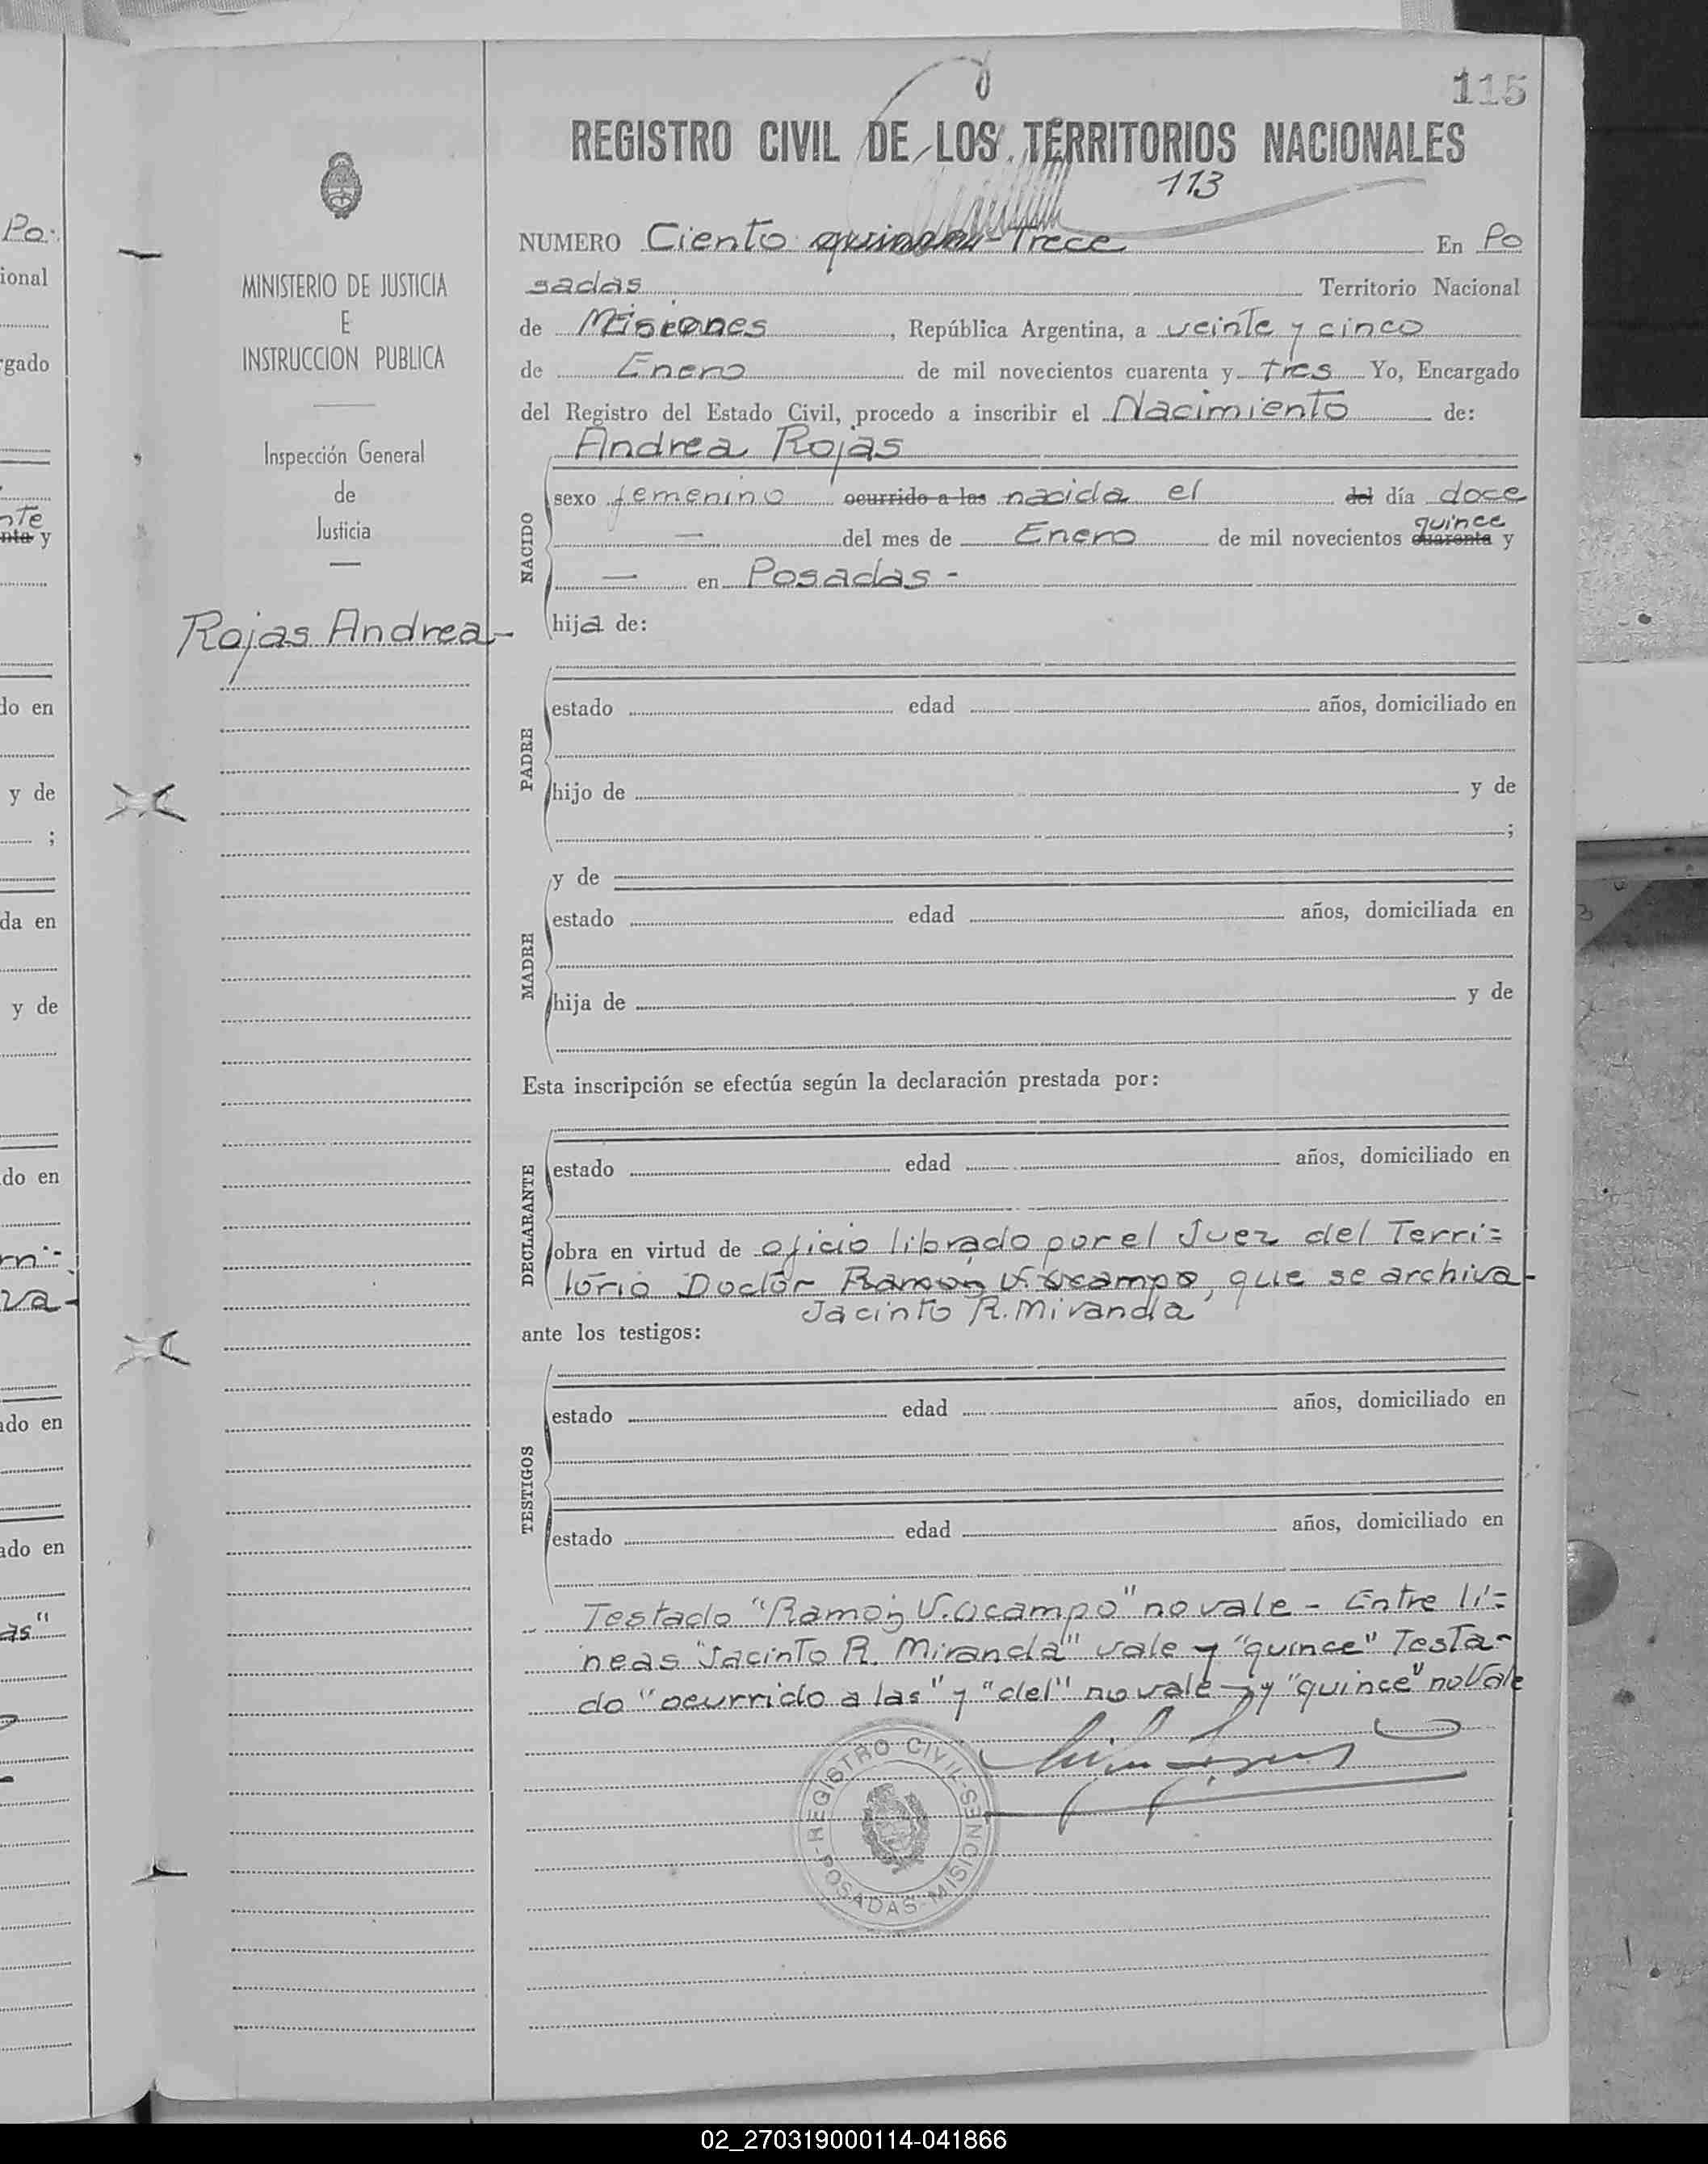 115
REGISTRO CIVIL DE LOS TERRITORIOS NACIONALES
113
NUMERO Ciento quince Trece En Po
sadas Territorio Nacional
de Misiones, República Argentina, a veinte y cinco
de Enero de mil novecientos cuarenta y tres Yo, Encargado
del Registro del Estado Civil, procedo a inscribir el Nacimiento de:
Andrea Rojas
NACIDO
sexo femenino ocurrido a las nacida el del día doce
quince
— del mes de Enero de mil novecientos cuarenta y
— en Posadas -
hija de:
PADRE
estado edad años, domiciliado en
hijo de y de
;
MADRE
y de
estado edad años, domiciliada en
hija de y de
Esta inscripción se efectúa según la declaración prestada por:
DECLARANTE
estado edad años, domiciliado en
obra en virtud de oficio librado por el Juez del Terri=
torio Doctor Ramón V. Ocampo, que se archiva-
Jacinto R. Miranda
ante los testigos:
TESTIGOS
estado edad años, domiciliado en
estado edad años, domiciliado en
Testado "Ramón V. Ocampo" no vale - Entre lí=
neas "Jacinto R. Miranda" vale y "quince" Testa-
do "ocurrido a las" y "del" no vale - y "quince" no Vale
REGISTRO CIVIL-SEN
POSADAS-MISIONES
MINISTERIO DE JUSTICIA
E
INSTRUCCION PUBLICA
Inspección General
de
Justicia
Rojas Andrea-
Po:
ional
rgado
nte
nta y
do en
y de
;
da en
y de
do en
rri=
va-
do en
ado en
as"
02_270319000114-041866